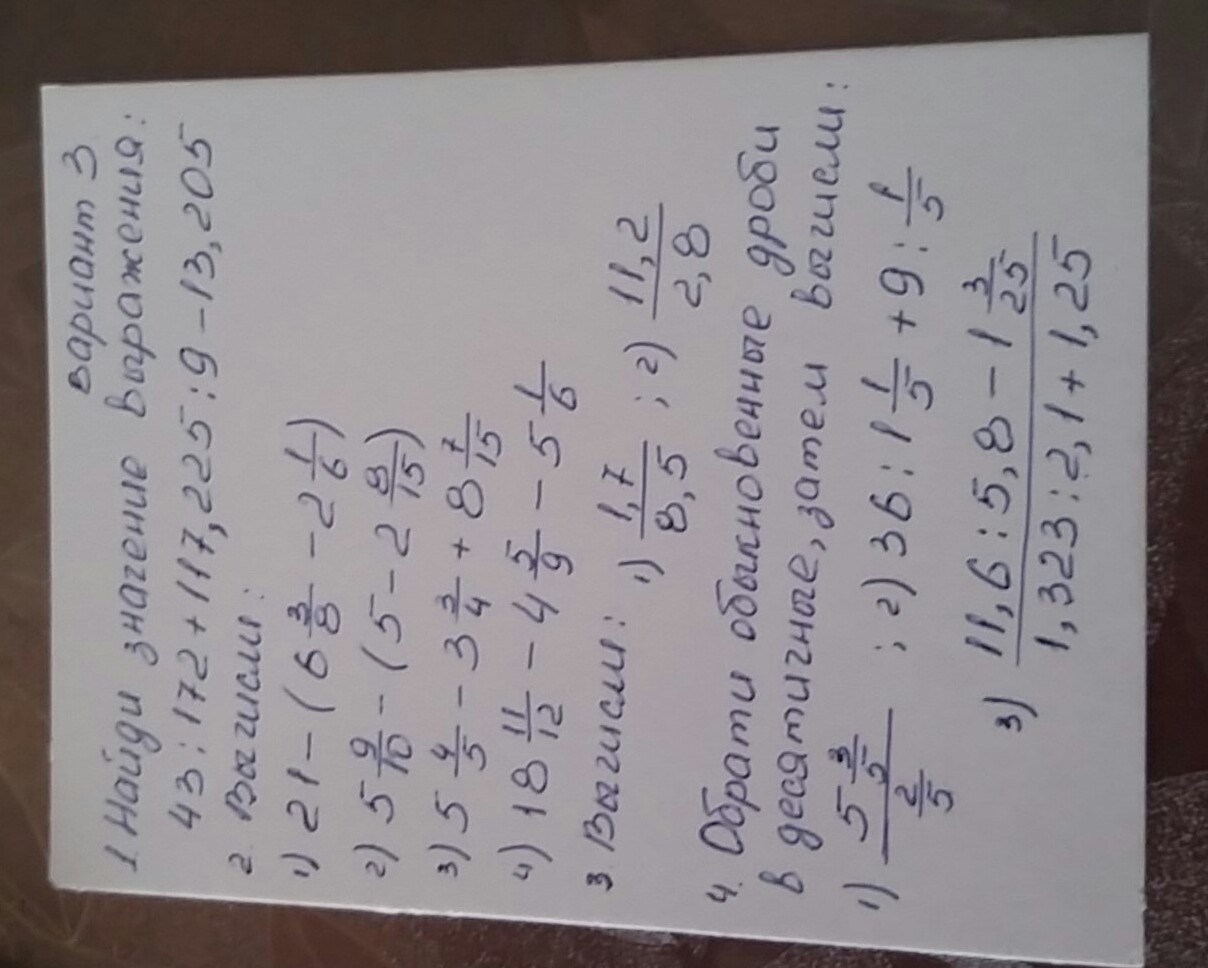 Вариант 3
1. Найди значение выражения:
43 : 172 + 117,225 : 9 - 13,205
2. Вычисли:
1) 21 - (6 3/8 - 2 1/6)
2) 5 9/10 - (5 - 2 8/15)
3) 5 4/5 - 3 3/4 + 8 7/15
4) 18 11/12 - 4 5/9 - 5 1/6
3. Вычисли: 1) 1,7/8,5 ; 2) 11,2/2,8
4. Обрати обыкновенные дроби
в десятичные, затем вычисли:
1) (5 3/5)/(2/5) ; 2) 36 : 1 1/5 + 9 : 1/5
3) (11,6 : 5,8 - 1 3/25)/(1,323 : 2,1 + 1,25)